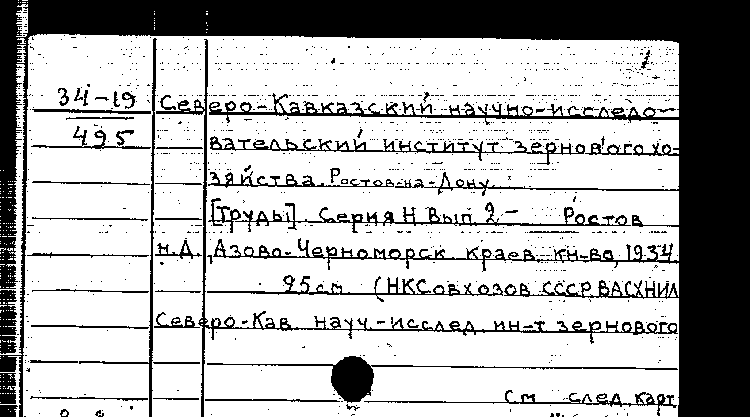 34-19 Северо-Кавказский научно-исследо-
495 вательский институт зернового хо-
зяйства. Ростов-на-Дону.
[Труды]. Серия Н Вып. 2- Ростов
н.Д., Азово-Черноморск. краев. кн-во, 1934.
25см. (НКСовхозов СССР. ВАСХНИЛ
Северо-Кав. науч.-исслед. ин-т зернового
См. след. карт.